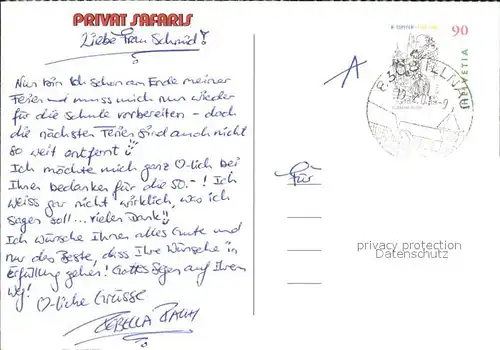 PRIVAT SAFARIS
Liebe Frau Schmid!
Nun bin ich schon am Ende meiner
Ferien und muss mich nun wieder
für die Schule vorbereiten - doch
die nächsten Ferien sind auch nicht
so weit entfernt!
Ich möchte mich ganz ♡-lich bei
Ihnen bedanken für die 50.-! Ich
weiss gar nicht wirklich, was ich
sagen soll... vielen Dank!!
Ich wünsche Ihnen alles Gute und
nur das Beste, dass Ihre Wünsche in
Erfüllung gehen! Gottes Segen auf Ihrem
Weg!
♡-liche Grüsse
A
Für
90
HELVETIA
privacy protection
Datenschutz